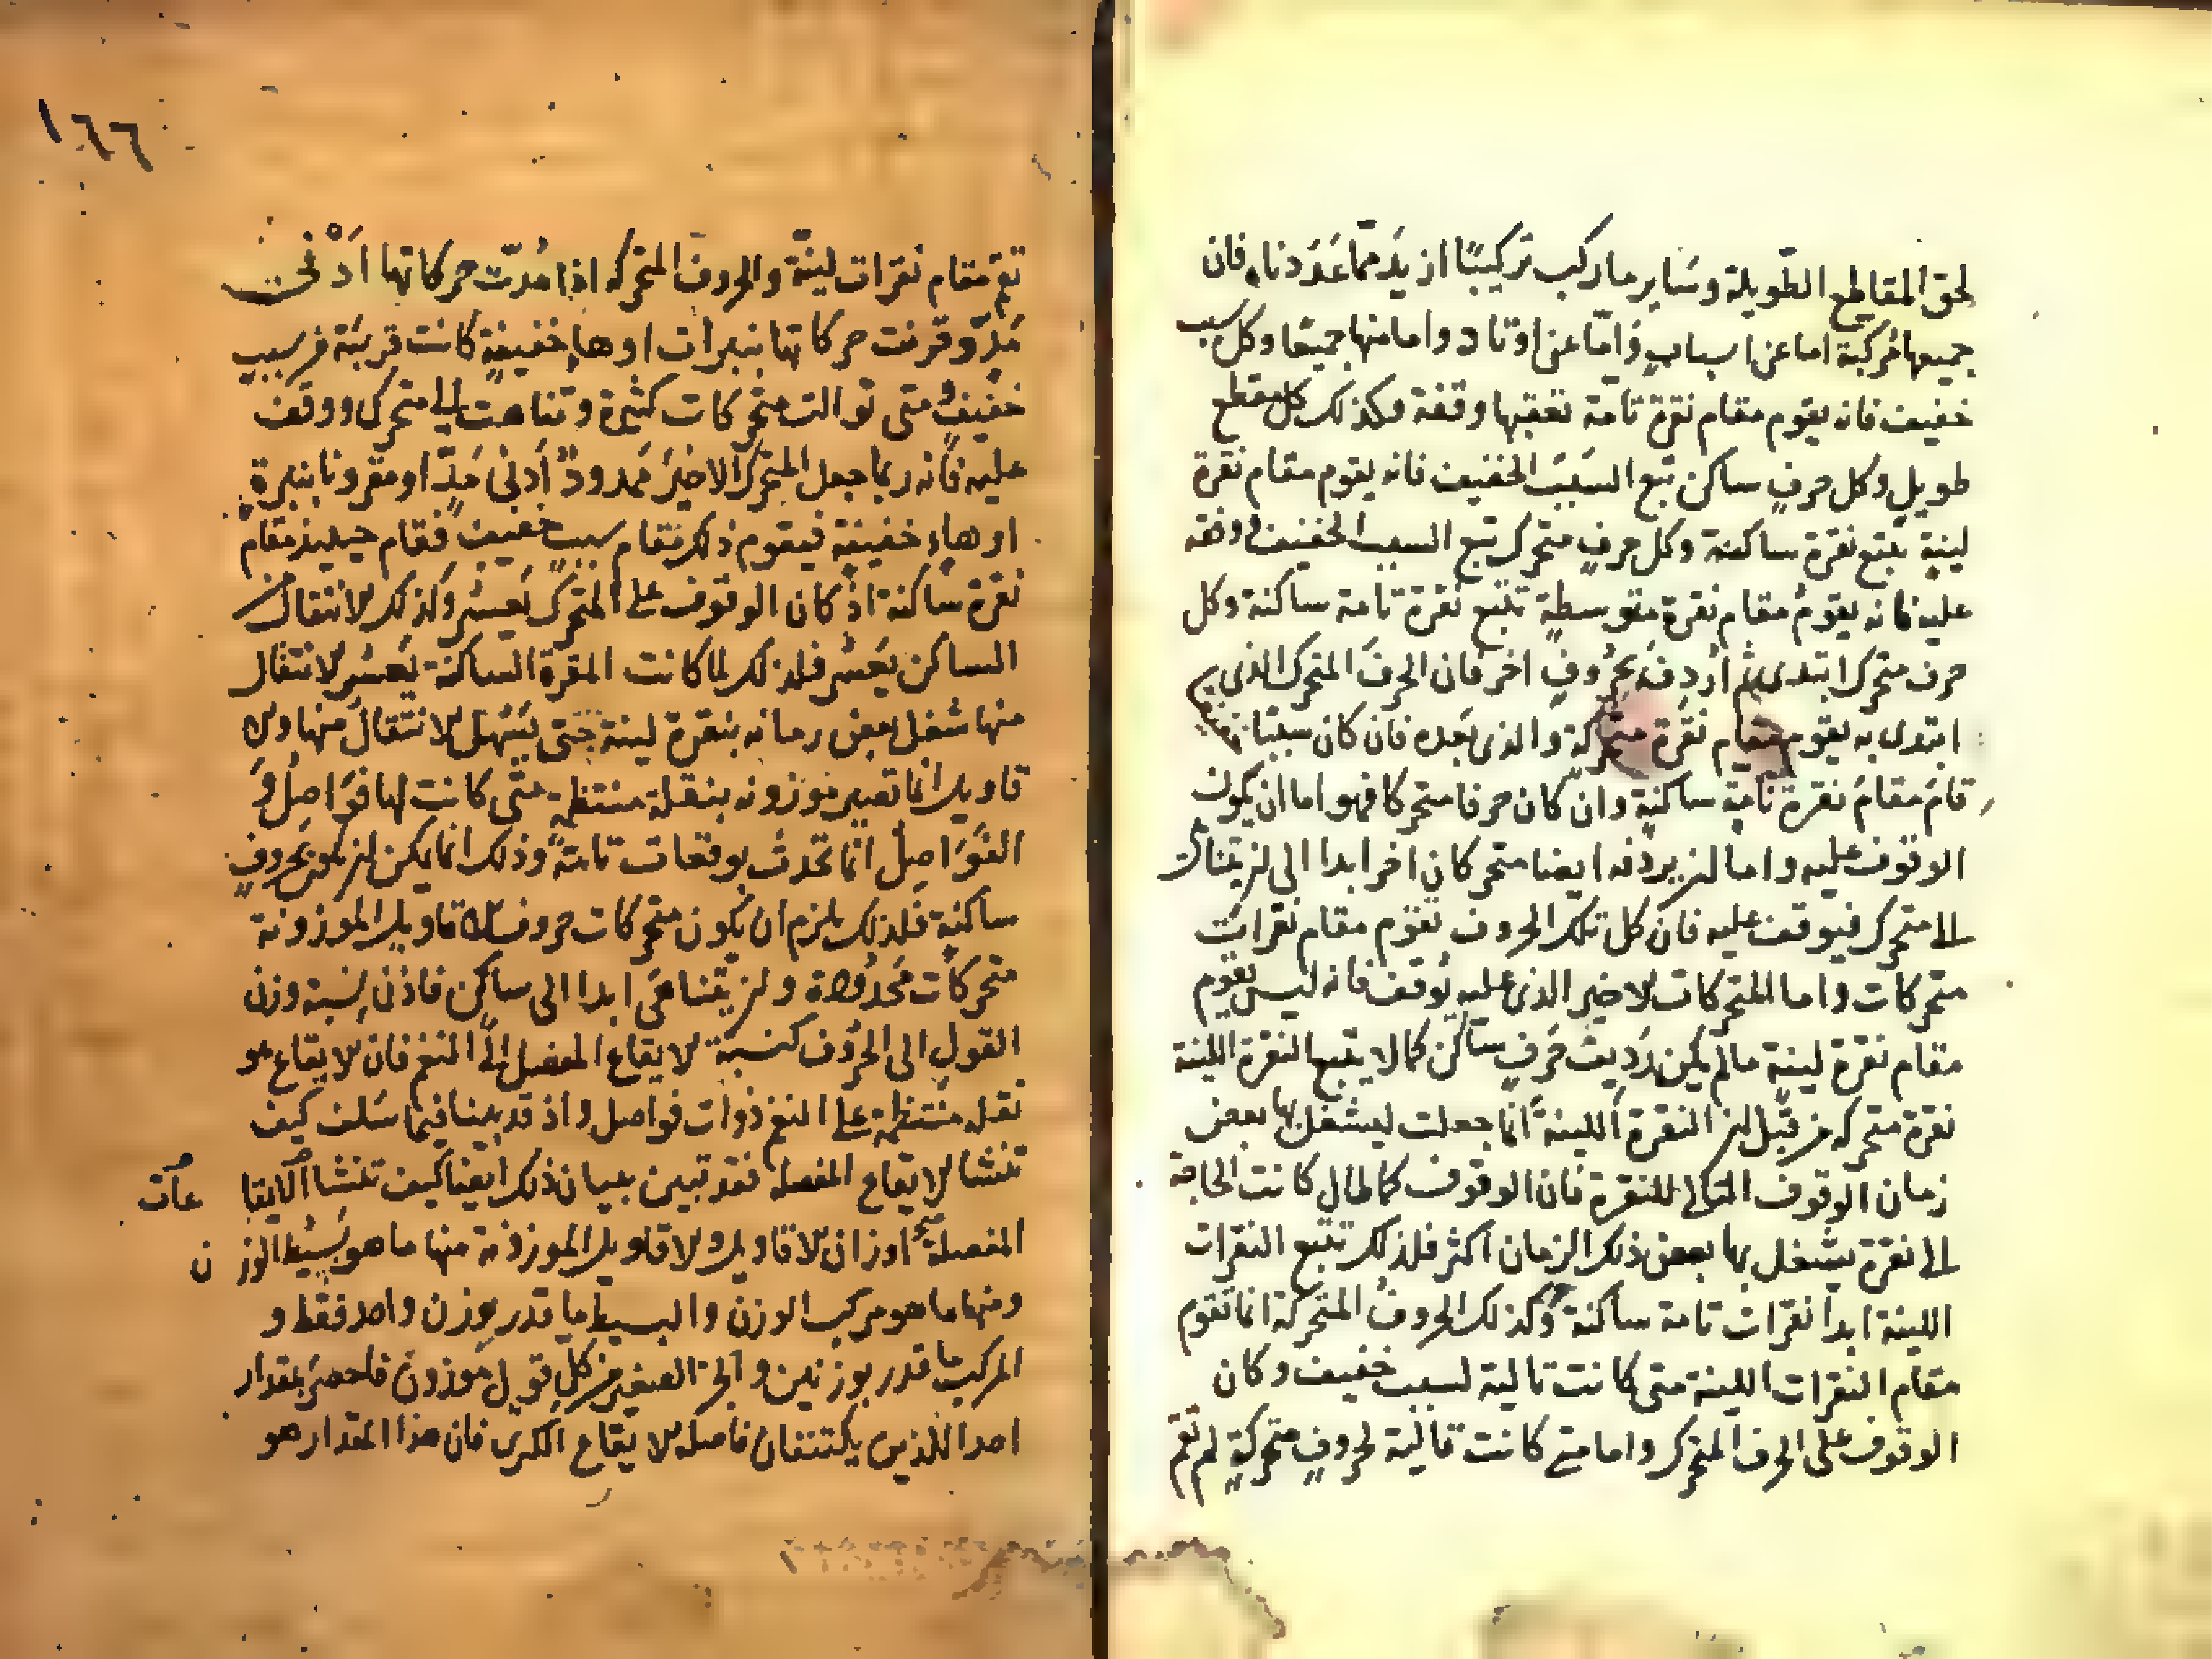 لحق المقاطع الطويلة وسَاير ما ركب تركيبًا ازيد ممّا عَدَدناه فان
جميعها مُركبة اما عن اسبابٍ وَامّا عن اوتاد واما منها جميعًا وكل سبب
خفيف فانه يقوم مقام نقرة تامة تعقبها وقفة وكذلك كل مقطع
طويل وكل حرفٍ ساكن تبع السَبَبَ الخفيف فانه يقوم مقام نقرة
لينةٍ تتبع نقرة ساكنة وكل حرفٍ متحرك تبع السبب الخفيف ووقف
عليه فانه يقومُ مقام نقرة متوسطةٍ تتبع نقرة تامة ساكنة وكل
حرف متحرك ابتدى ثم اُردِفَ بحُروفٍ اخر فان الحرفَ المتحرك الذى
ابتدى به يقوم مقام نقرة متحركة والذى بَعده فان كان سببًا
قامَ مقامَ نقرة تامةٍ ساكنةٍ وان كان حرفا متحركا فهو اما ان يكون
الوقوف عليه واما ان يردفه ايضا متحركان اخر ابدا الى ان يتناهى
الى متحرك فيوقف عليه فان كل تلك الحروف تقوم مقام نقرات
متحركات واما المتحركات الاخير الذى عليه يُوقف فانه ليس يقوم
مقام نقرة لينة ما لم يكن رَدِيف حَرفٍ ساكن كما لا يتبع النقرة اللينة
نقرة متحركه من قِبَل ان النقرة اللينة انما جعلت ليشغل بها بعض
زمان الوقوف التالى للنقرة فان الوقوف كما طال كانت الحاجة
الى نقرة يشغل بها بعض ذلك الزمان اكثر فلذلك تتبع النقرات
اللينة ابدا نقرات تامة ساكنة وكذلك الحروفُ المتحركة انما تقوم
مقام النقرات اللينة متى كانت تالية لسبب خفيف وكان
الوقوف على الحرف المتحرك واما متى كانت تالية لحروفٍ متحركةٍ لم تقم
١٦٦
تقم مقام نقرات لينة والحروف المتحركه اذا مُدّت حركاتها اَدْنى
مَدٍّ وقرنت حركاتها بنبرات او هاءٍ خفيفةٍ كانت قريبَة من سبب
خفيفٍ ومتى توالت متحركات كثيرة وتناهت الى متحرك ووقف
عليه فانه ربما جعل المتحرك الاخيرَ مَمدودًا اَدنى مَدٍّ او مقرونا بنبرة
او هاءٍ خفيفة فيقوم ذلك مقام سبب خفيف فقام حينئذ مقام
نقرة ساكنة اذ كان الوقوف على المتحرك يَعسُر وكذلك الانتقال من
الساكن يَعسُر فلذلك لما كانت النقرة الساكنة يَعسُر الانتقال
منها شغل بعض زمانه بنقرة لينة حتى يَسْهل الانتقالَ منها والا
قاويل انما تصير موزونه بنقلة منتظمةٍ متى كانت لها فَوَاصِل و
الفَوَاصِل انما تحدث بوقفات تامّة وذلك انما يكن ان يكون بحروفٍ
ساكنةٍ فلذلك يلزم ان تكون متحركات حروف الاقاويل الموزونة
متحركات مَحدُودة وان يتناهَى ابدا الى ساكن فاذن نِسبة وزن
القول الى الحُرُوف كنسبة الايقاع المفصل الى النغم فان الايقاع هو
نقله منتظمة على النغم ذوات فواصل واذ قد بينا فيما سَلف كيف
تنشا الايقاع المفصله فقد تبين ببيان ذلك ايضا كيف تنشا الايقا عات
المفصلة اوزان الاقاويل والاقاويل الموزونة منها ما هو بَسيط الوز ن
ومنها ما هو مركب الوزن والبسيط ما قدر بوزن واحد فقط و
المركب ما قدر بوزنين والجزا الصغير من كل قول موزون فلحصرَ بمقدار
احد اللذين يكتنفان فاصله الايقاع الكبرى فان هذا المقدار هو